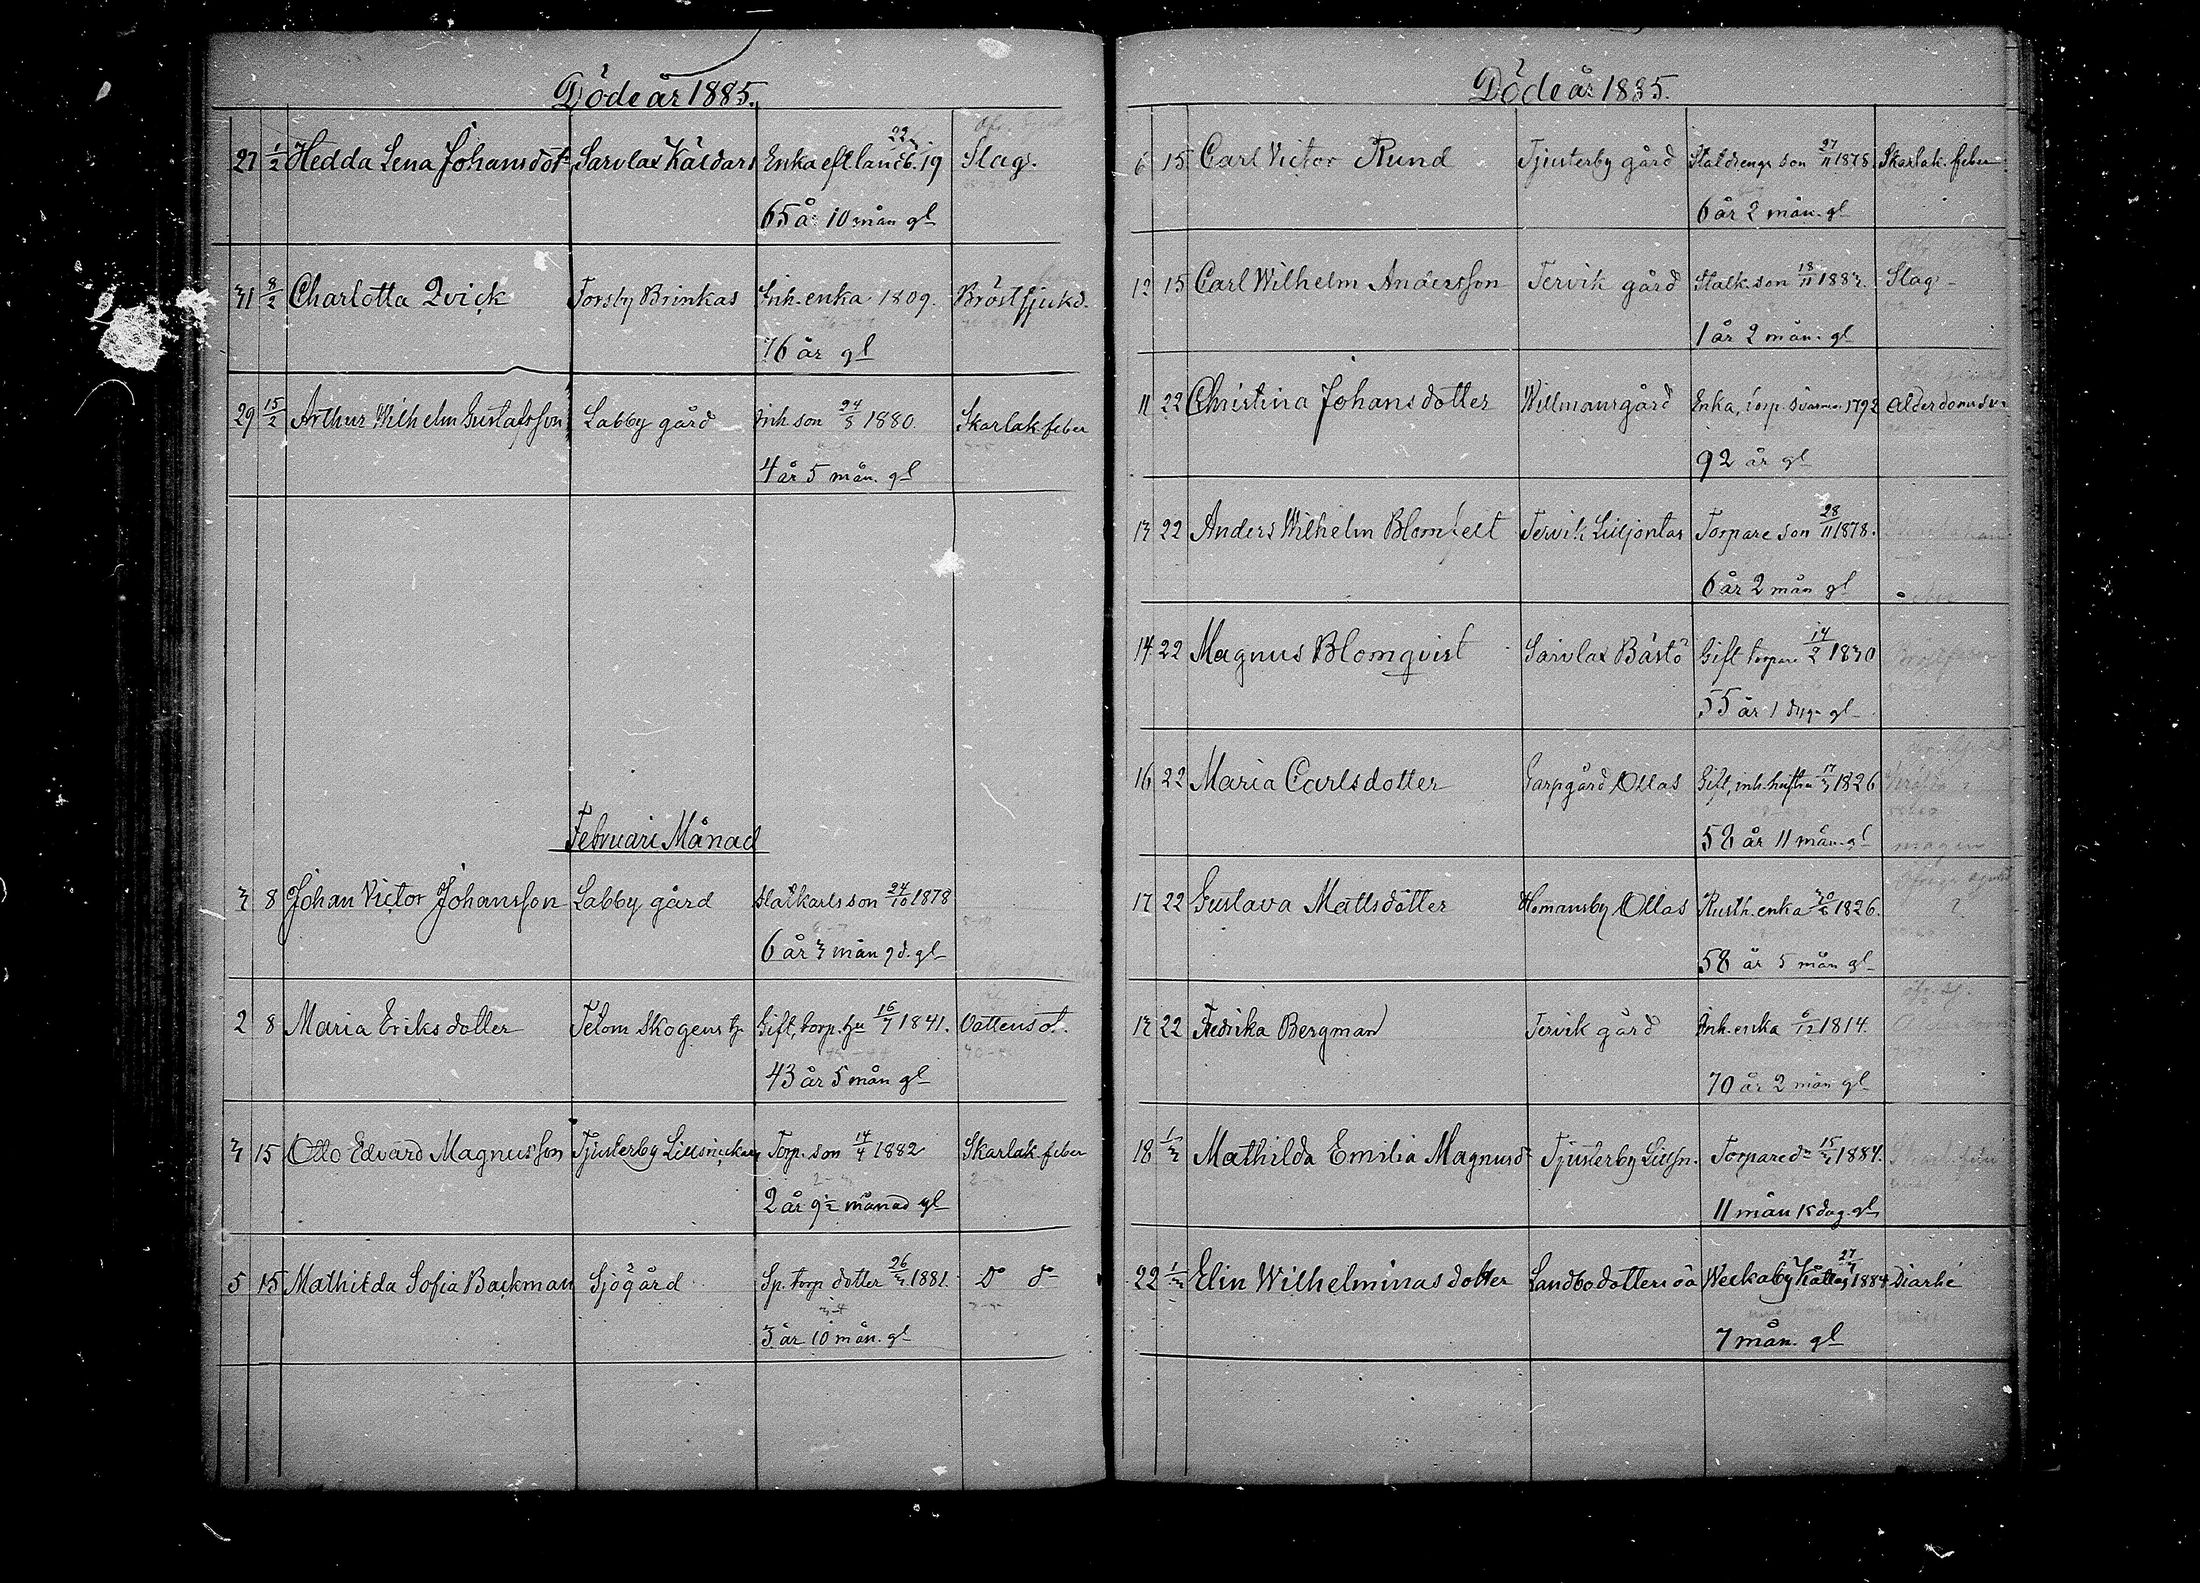 Döde år 1885.
27 1/2 Hedda Lena Johansdot Sarvlax Käldars Enka eft. landb. 22/3 19 Slag.
65 år 10 mån gl
31 8/2 Charlotta Qvick Torsby Brinkas Inh. enka 1809. Bröstsjukd.
76 år gl
29 15/2 Arthur Wilhelm Gustafsson Labby gård Inh. son 24/8 1880. Skarlak. feber
4 år 5 mån. gl
Februari Månad
3 8 Johan Victor Johansson Labby gård Stalkarls son 24/10 1878
6 år 3 mån 9 d. gl
2 8 Maria Eriksdotter Tetom Skogens tp Gift, torp. hu 16/7 1841. Vattensot.
43 år 5 mån gl
3 15 Otto Edvard Magnusson Tjusterby Lillsnickars Torp. son 14/4 1882 Skarlak. feber
2 år 9 1/2 månad gl
5 15 Mathilda Sofia Backman Sjögård Sp. torp dotter 26/3 1881. D o
3 år 10 mån. gl
Döde år 1885.
6 15 Carl Victor Rund Tjusterby gård Staldrengs son 27/11 1878 Skarlak. feber
6 år 2 mån. gl
12 15 Carl Wilhelm Andersson Tervik gård Stalk. son 18/11 1883. Slag
1 år 2 mån. gl
11 22 Christina Johansdotter Willmansgård Enka, torp. svärmor 1792 Ålderdomssv.
92 år gl
13 22 Anders Wilhelm Blomfelt Tervik Liljontas Torpare son 28/11 1878.
6 år 2 mån gl
14 22 Magnus Blomqvist Sarvlax Båstö Gift torpare 14/2 1830
55 år 1 dygn gl
16 22 Maria Carlsdotter Garpgård Ollas Gift, inh. hustru 17/3 1826
58 år 11 mån. gl magen
17 22 Gustava Mattsdotter Homansby Ollas Rusth. enka 30/8 1826. ?
58 år 5 mån gl
17 22 Fredrika Bergman Tervik gård Inh. enka 6/12 1814.
70 år 2 mån gl
18 1/3 Mathilda Emilia Magnusd Tjusterby Lillsn. Torpare dr 15/3 1884.
11 mån 15 dag. gl
22 1/3 Elin Wilhelminas dotter Landbodotters oä Weckoby Kåttas 27/7 1884 Diarhé
7 mån. gl